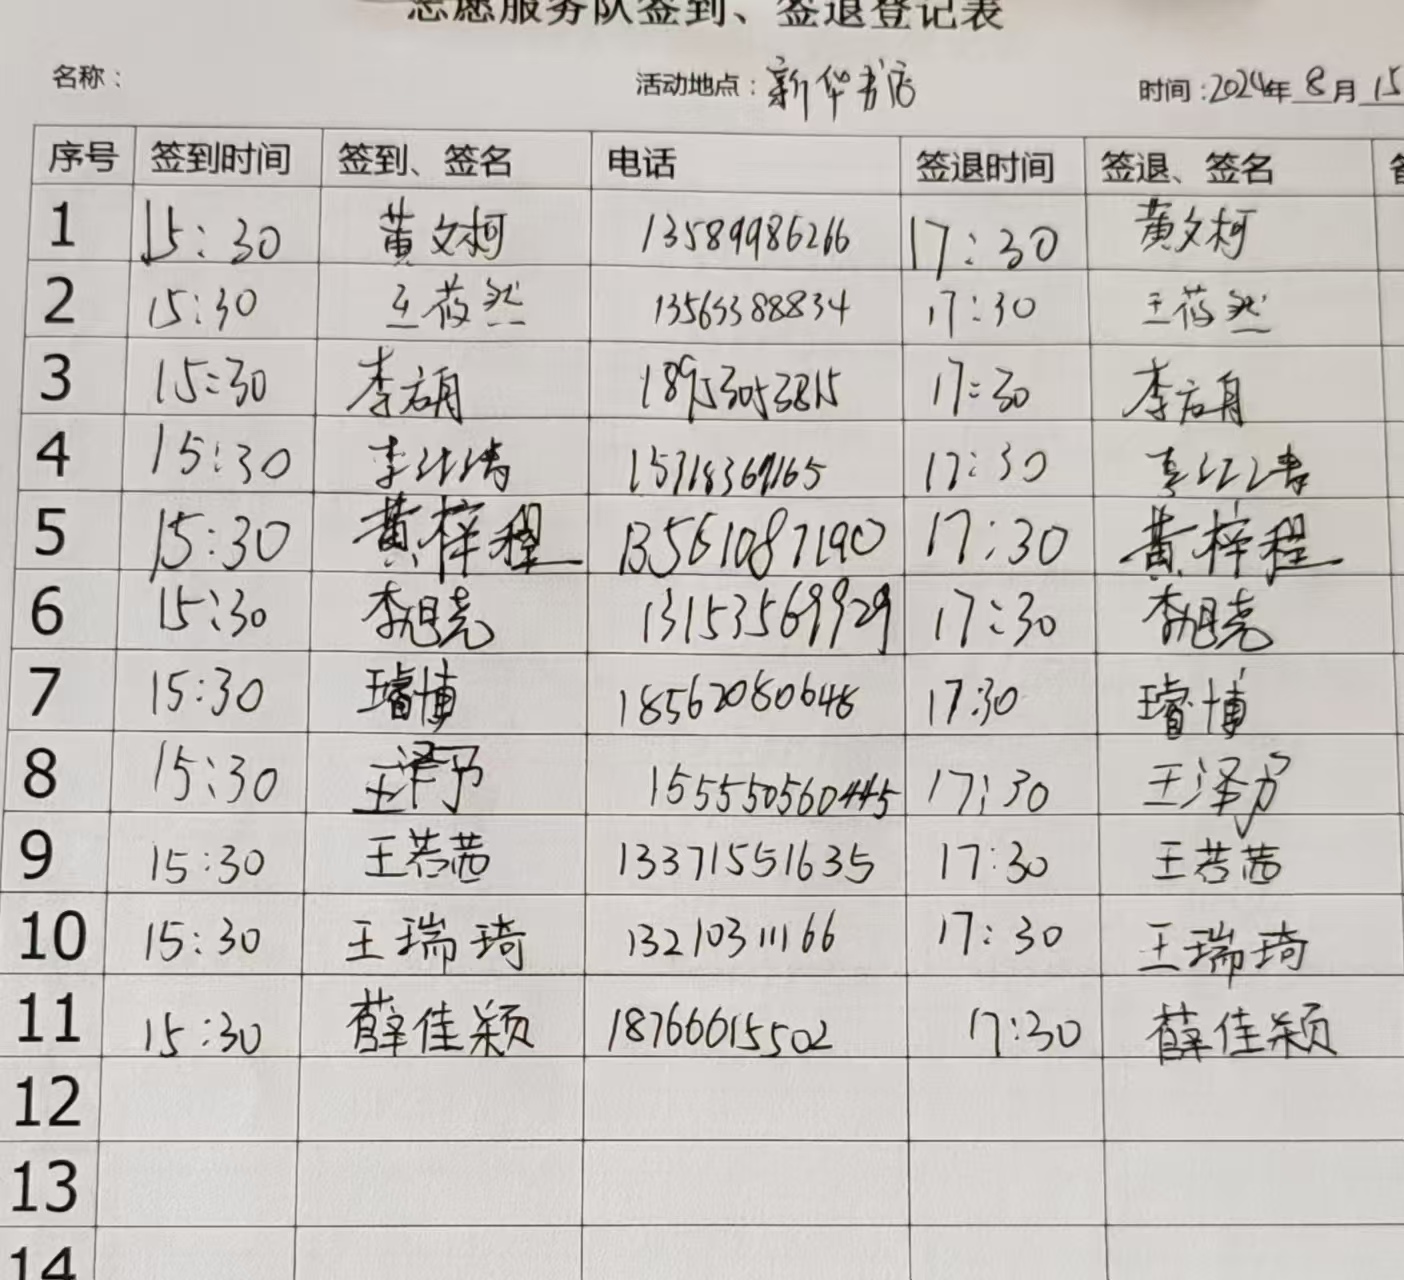 志愿服务队签到、签退登记表
名称： 活动地点：新华书店 时间：2024年 8月 15
序号 签到时间 签到、签名 电话 签退时间 签退、签名
1 15:30 黄文柯 13589986266 17:30 黄文柯
2 15:30 王莜然 13563388834 17:30 王莜然
3 15:30 李右甬 18953053815 17:30 李右甬
4 15:30 李江涛 17:30 李江涛
5 15:30 黄梓程 13561087190 17:30 黄梓程
6 15:30 李旭尧 13153569929 17:30 李旭尧
7 15:30 璿博 18562080648 17:30 璿博
8 15:30 王泽予 155550560445 17:30 王泽予
9 15:30 王若茜 13371551635 17:30 王若茜
10 15:30 王瑞琦 13210311166 17:30 王瑞琦
11 15:30 薛佳颖 18766615502 17:30 薛佳颖
12
13
14